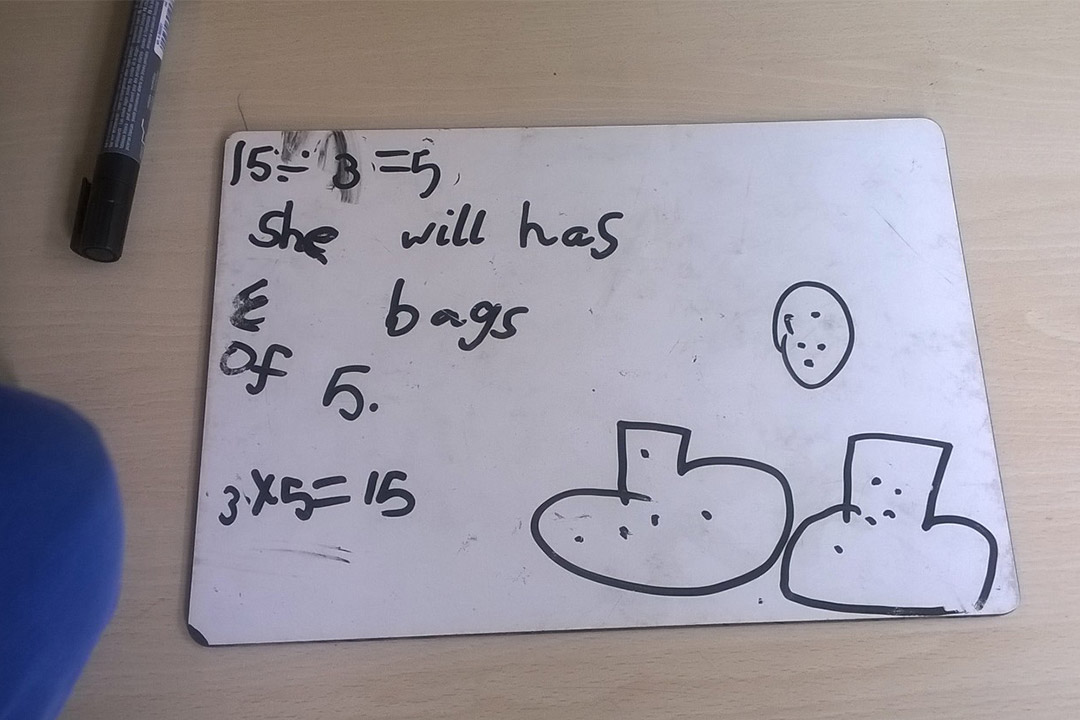 15÷3=5
She will has
bags
of 5.
3×5=15